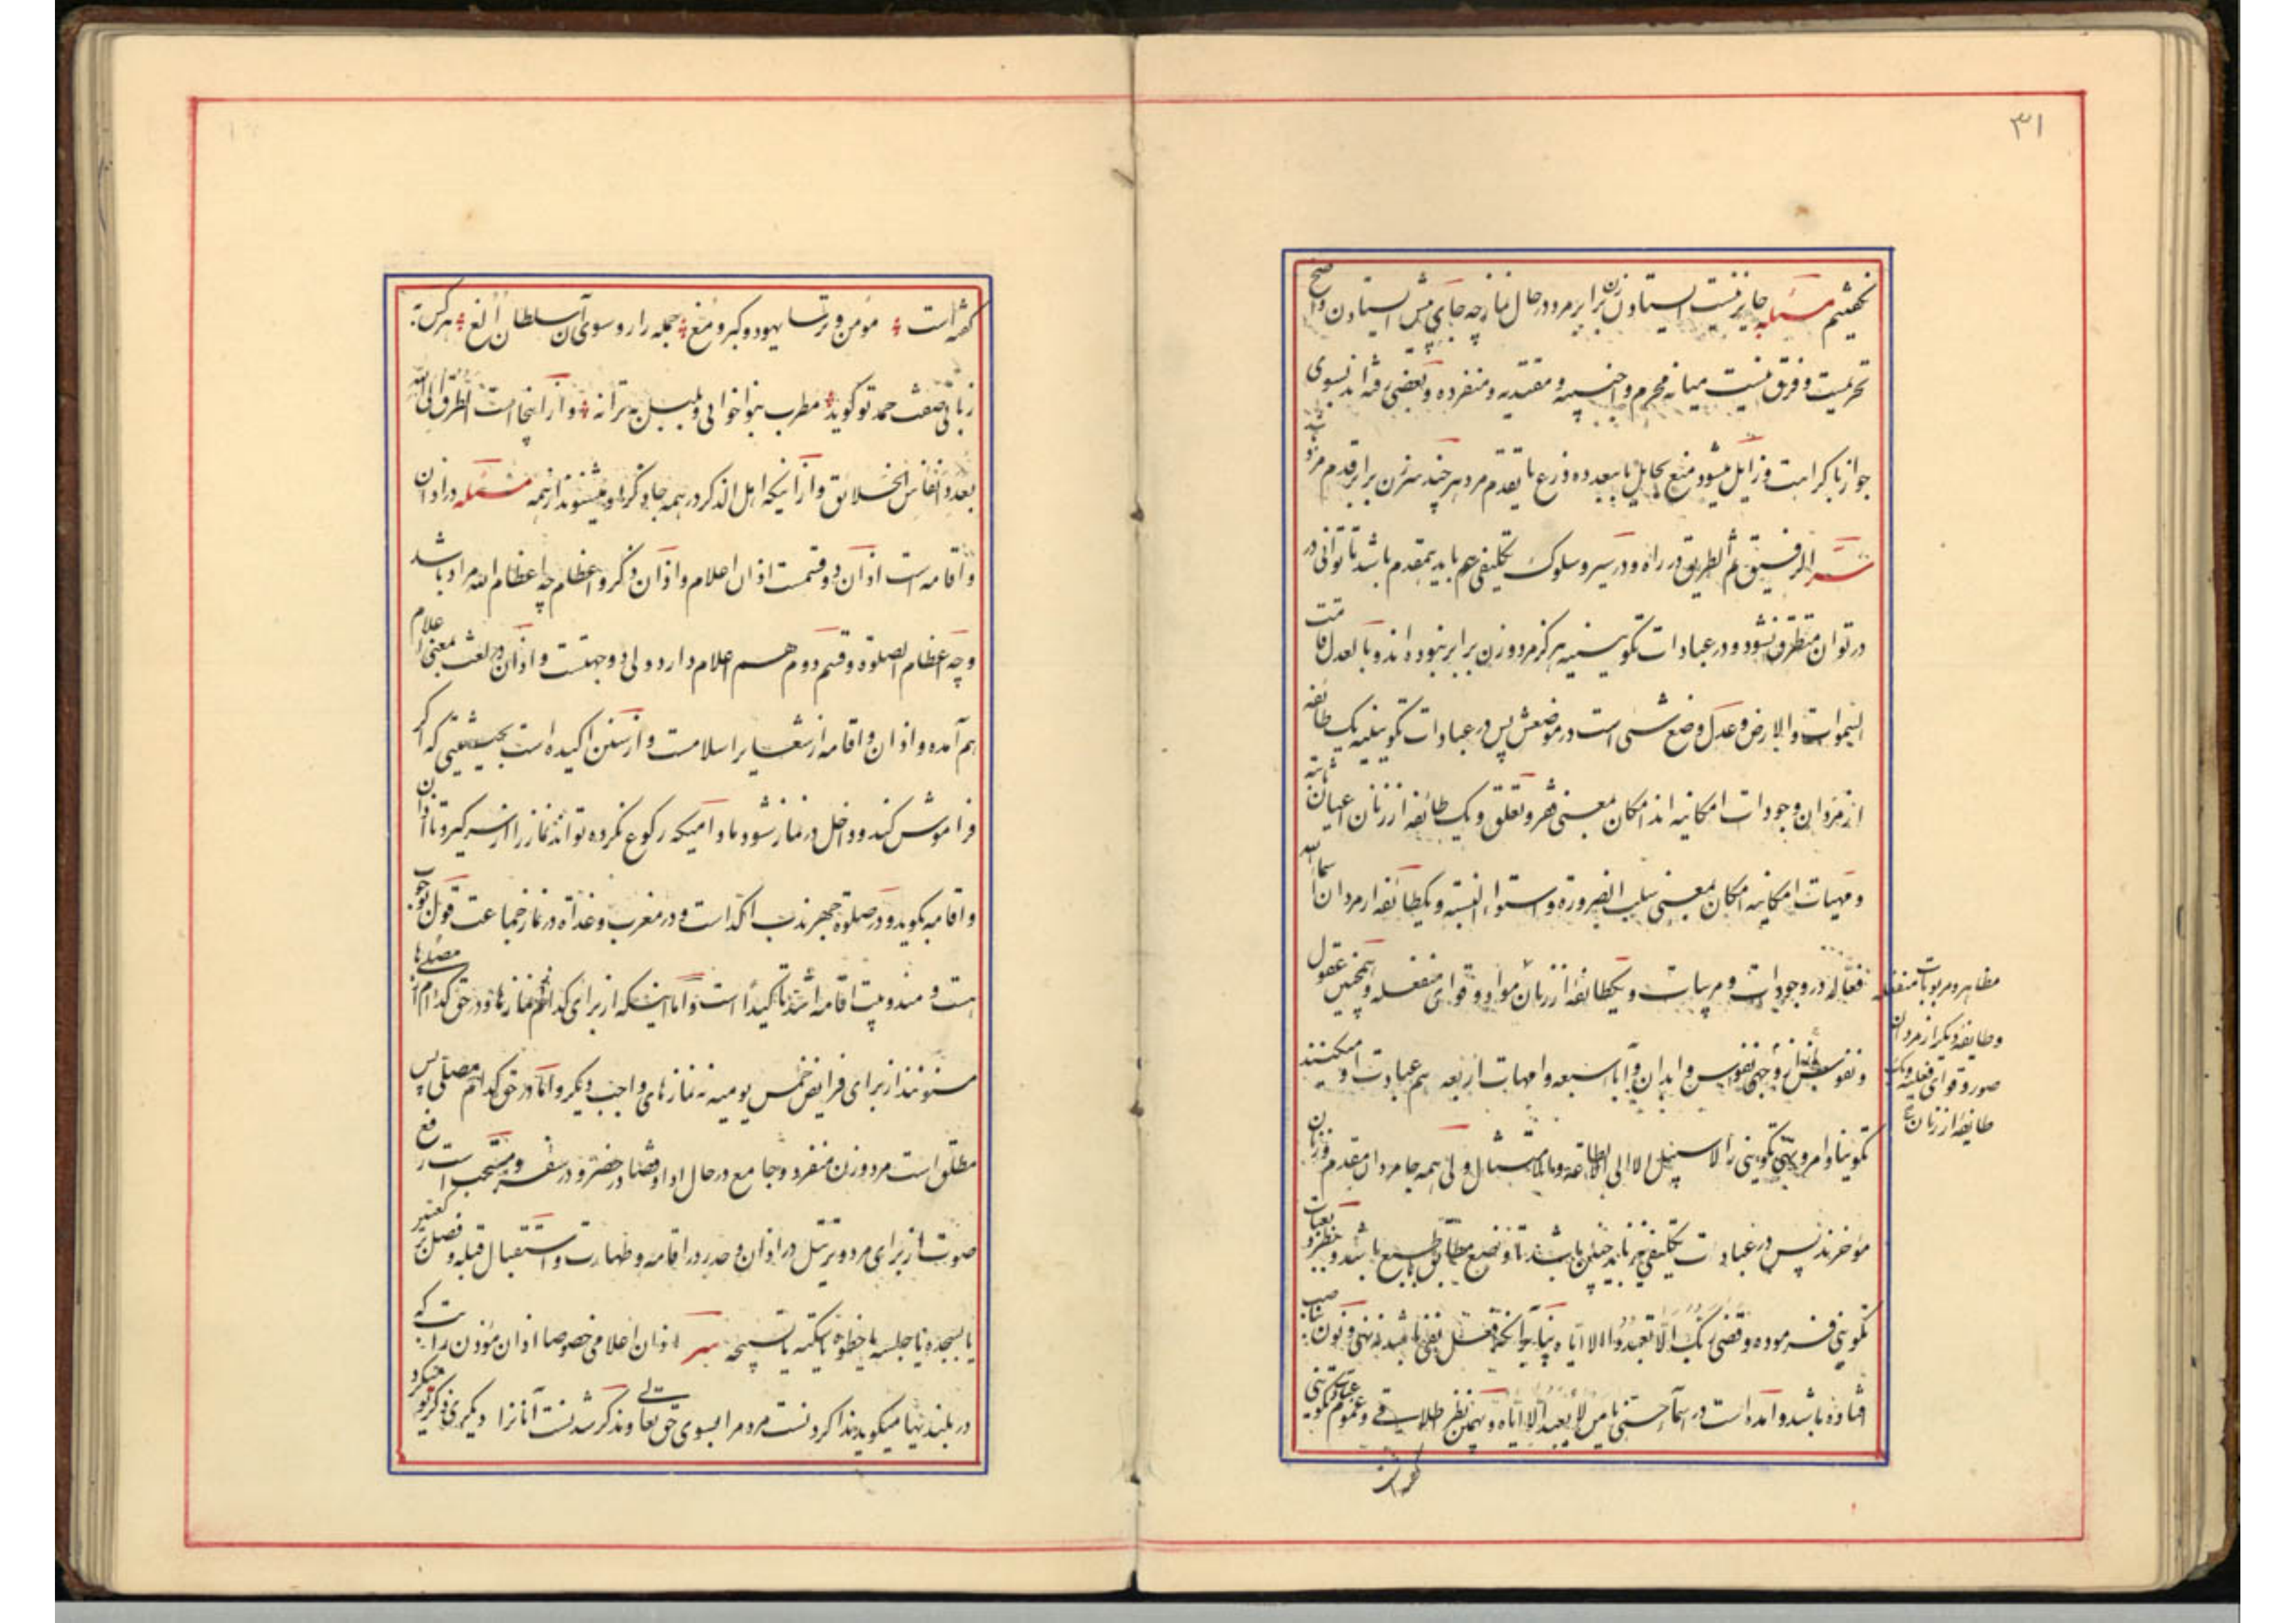 ۳۱
نگفتیم مسئله جایز نیست ایستادن زن برابر مرد در حال نماز چه جای پیش ایستادن و اصح
تحریمست و فرق نیست میانه محرم و اجنبیه و مقتدیه و منفرده و بعضی رفته‌اند بسوی
جواز با کراهت و زایل میشود منع بحایل یا ببعد ده ذرع یا بتقدم مرد هر چند سر زن برابر قدم مرد باشد
سر الرفیق ثم الطریق در راه و در سیر و سلوک تکلیفی هم باید مقدم باشد تا توانی در
در توان متطرق نشود و در عبادات تکوینیه هرگز مرد و زن برابر نبوده‌اند و بالعدل قامت
السموات و الارض و عدل وضع شیء است در موضعش پس در عبادات تکوینیه یک طائفه
از مردان وجودات امکانیه‌اند امکان بمعنی فقر و تعلق و یک طائفه از زنان اعیان ثابته
و مهیات امکانیه امکان بمعنی سلب الضرورة و استواء النسبة و یکطائفه از مردان اسماء الله
فعاله در وجودات و مربیات و یکطائفه از زنان مواد و قوای منفعله و همچنین عقول
و نفوس و نفوس و ابدان و آباء سبعه و امهات اربعه هم عبادت او میکنند
تکوینا و امر و نهی تکوینی را لا سبیل الا الی الاطاعة و الامتثال ولی همه جا مردان مقدم و زنان
مؤخرند پس در عبادات تکلیفی نیز باید چنین باشند تا وضع مطابق با طبع باشد و نظر بعبادت
تکوینی فرموده و قضی ربک الا تعبدوا الا ایاه بنابر آنکه فعل نفی باشد نه نهی و نون بناصب
افتاده باشد و آمده است در اسماء حسنی یا من لا یعبد الا ایاه و بهمین نظر اطلاقی و عموم عبادت تکوینی
گفته است
مظاهر و مربوبات منفعله
و طایفه دیگر از مردان
صور و قوای فعلیه و یک
طایفه از زنان
گفته است مؤمن و ترسا یهود و گبر و مغ جمله را رو سوی آن سلطان الغ هر کس به
زبانی صفت حمد تو گوید مطرب بنواخوانی و بلبل به ترانه و از اینجا است الطرق الی الله
بعدد انفاس الخلائق و از اینکه اهل الذکر در همه جا ذکر او میشنوند از همه مسئله در اذان
و اقامه است اذان دو قسمت اذان اعلام و اذان ذکر و اعظام چه اعظام الله مراد باشد
و چه اعظام الصلوة و قسم دوم هم اعلام دارد ولی دو جهتست و اذان در لغت بمعنی اعلام
هم آمده و اذان و اقامه از شعایر اسلامست و از سنن اکیده است بحیثیتی که اگر
فراموش کند و داخل در نماز شود مادامیکه رکوع نکرده تواند نماز را از سر گیرد تا اذان
و اقامه بگوید و در صلوة جهر ندب آکد است و در مغرب و غداة در نماز جماعت قول بوجوب
هست و مندوبیت اقامه اشد تاکیدا است و اما اینکه از برای کدام نمازها و در حق کدام از مصلی‌ها
مسنونند از برای فرایض خمس یومیه نه نمازهای واجب دیگر و اما در حق کدام مصلی پس
مطلق است مرد و زن منفرد و جامع در حال ادا و قضا در حضر و در سفر و مستحب است رفع
صوت از برای مرد و ترتیل در اذان و حدر در اقامه و طهارت و استقبال قبله و فصل بر تعبیر
یا بسجده یا جلسه یا خطوه یا سکته یا تسبیحه سر اذان اعلامی خصوصا اذان مؤذن راتب که
در بلندیها میگوید ندا کردنست مردم را بسوی حق تعالی و مذکر شدنست آنانرا دیگری ذکر تو میکرد